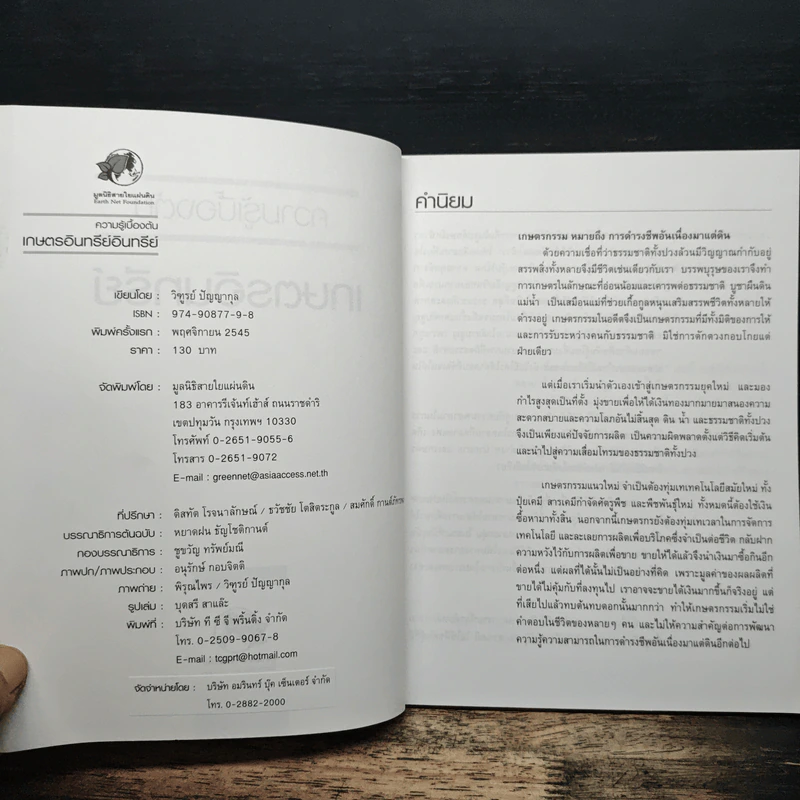 มูลนิธิสายใยแผ่นดิน
Earth Net Foundation
ความรู้เบื้องต้น
เกษตรอินทรีย์อินทรีย์
เขียนโดย : วิฑูรย์ ปัญญากุล
ISBN : 974-90877-9-8
พิมพ์ครั้งแรก : พฤศจิกายน 2545
ราคา : 130 บาท
จัดพิมพ์โดย : มูลนิธิสายใยแผ่นดิน
183 อาคารรีเจ้นท์เฮ้าส์ ถนนราชดำริ
เขตปทุมวัน กรุงเทพฯ 10330
โทรศัพท์ 0-2651-9055-6
โทรสาร 0-2651-9072
E-mail : greennet@asiaaccess.net.th
ที่ปรึกษา : ดิสทัต โรจนาลักษณ์ / ธวัชชัย โตสิตระกูล / สมศักดิ์
บรรณาธิการต้นฉบับ : หยาดฝน ธัญโชติกานต์
กองบรรณาธิการ : ชูขวัญ ทรัพย์มณี
ภาพปก/ภาพประกอบ : อนุรักษ์ กอบจิตติ
ภาพถ่าย : พิรุณไพร / วิฑูรย์ ปัญญากุล
รูปเล่ม : บุดสรี สาแล๊ะ
พิมพ์ที่ : บริษัท ที ซี จี พริ้นติ้ง จำกัด
โทร. 0-2509-9067-8
E-mail : tcgprt@hotmail.com
จัดจำหน่ายโดย : บริษัท อมรินทร์ บุ๊ค เซ็นเตอร์ จำกัด
โทร. 0-2882-2000
คำนิยม
เกษตรกรรม หมายถึง การดำรงชีพอันเนื่องมาแต่ดิน
ด้วยความเชื่อที่ว่าธรรมชาติทั้งปวงล้วนมีวิญญาณกำกับอยู่
สรรพสิ่งทั้งหลายจึงมีชีวิตเช่นเดียวกับเรา บรรพบุรุษของเราจึงทำ
การเกษตรในลักษณะที่อ่อนน้อมและเคารพต่อธรรมชาติ บูชาผืนดิน
แม่น้ำ เป็นเสมือนแม่ที่ช่วยเกื้อกูลหนุนเสริมสรรพชีวิตทั้งหลายให้
ดำรงอยู่ เกษตรกรรมในอดีตจึงเป็นเกษตรกรรมที่มีทั้งมิติของการให้
และการรับระหว่างคนกับธรรมชาติ มิใช่การตักตวงกอบโกยแต่
ฝ่ายเดียว
แต่เมื่อเราเริ่มนำตัวเองเข้าสู่เกษตรกรรมยุคใหม่ และมอง
กำไรสูงสุดเป็นที่ตั้ง มุ่งขายเพื่อให้ได้เงินทองมากมายมาสนองความ
สะดวกสบายและความโลภอันไม่สิ้นสุด ดิน น้ำ และธรรมชาติทั้งปวง
จึงเป็นเพียงแค่ปัจจัยการผลิต เป็นความผิดพลาดตั้งแต่วิธีคิดเริ่มต้น
และนำไปสู่ความเสื่อมโทรมของธรรมชาติทั้งปวง
เกษตรกรรมแนวใหม่ จำเป็นต้องทุ่มเทเทคโนโลยีสมัยใหม่ ทั้ง
ปุ๋ยเคมี สารเคมีกำจัดศัตรูพืช และพืชพันธุ์ใหม่ ทั้งหมดนี้ต้องใช้เงิน
ซื้อหามาทั้งสิ้น นอกจากนี้เกษตรกรยังต้องทุ่มเทเวลาในการจัดการ
เทคโนโลยี และละเลยการผลิตเพื่อบริโภคซึ่งจำเป็นต่อชีวิต กลับฝาก
ความหวังไว้กับการผลิตเพื่อขาย ขายให้ได้แล้วจึงนำเงินมาซื้อกินอีก
ต่อหนึ่ง แต่ผลที่ได้นั้นไม่เป็นอย่างที่คิด เพราะมูลค่าของผลผลิตที่
ขายได้ไม่คุ้มกับที่ลงทุนไป เราอาจจะขายได้เงินมากขึ้นก็จริงอยู่ แต่
ที่เสียไปแล้วทบต้นทบดอกนั้นมากกว่า ทำให้เกษตรกรรมเริ่มไม่ใช่
คำตอบในชีวิตของหลายๆ คน และไม่ให้ความสำคัญต่อการพัฒนา
ความรู้ความสามารถในการดำรงชีพอันเนื่องมาแต่ดินอีกต่อไป